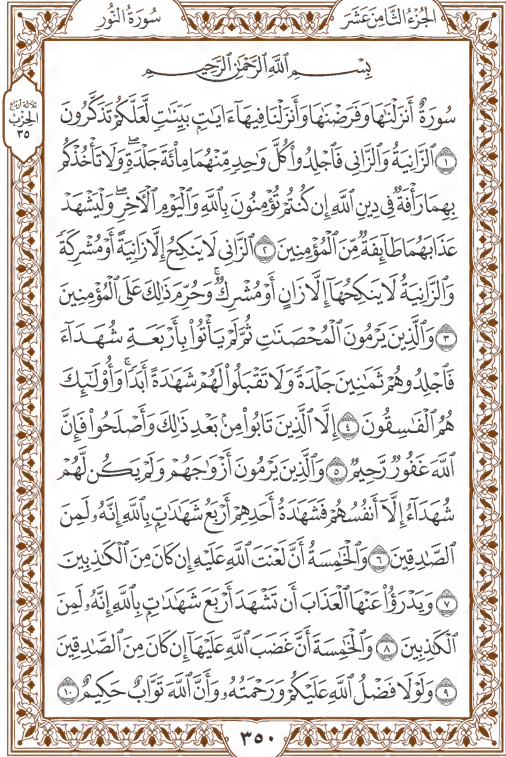 الجزء الثامن عشر
سورة النور
ثلاثة أرباع
الحزب
٣٥
بِسْمِ ٱللَّهِ ٱلرَّحْمَٰنِ ٱلرَّحِيمِ
سُورَةٌ أَنزَلْنَٰهَا وَفَرَضْنَٰهَا وَأَنزَلْنَا فِيهَآ ءَايَٰتٍۭ بَيِّنَٰتٍ لَّعَلَّكُمْ تَذَكَّرُونَ
١ ٱلزَّانِيَةُ وَٱلزَّانِى فَٱجْلِدُوا۟ كُلَّ وَٰحِدٍ مِّنْهُمَا مِا۟ئَةَ جَلْدَةٍ ۖ وَلَا تَأْخُذْكُم
بِهِمَا رَأْفَةٌ فِى دِينِ ٱللَّهِ إِن كُنتُمْ تُؤْمِنُونَ بِٱللَّهِ وَٱلْيَوْمِ ٱلْأَخِرِ ۖ وَلْيَشْهَدْ
عَذَابَهُمَا طَآئِفَةٌ مِّنَ ٱلْمُؤْمِنِينَ ٢ ٱلزَّانِى لَا يَنكِحُ إِلَّا زَانِيَةً أَوْ مُشْرِكَةً
وَٱلزَّانِيَةُ لَا يَنكِحُهَآ إِلَّا زَانٍ أَوْ مُشْرِكٌ ۚ وَحُرِّمَ ذَٰلِكَ عَلَى ٱلْمُؤْمِنِينَ
٣ وَٱلَّذِينَ يَرْمُونَ ٱلْمُحْصَنَٰتِ ثُمَّ لَمْ يَأْتُوا۟ بِأَرْبَعَةِ شُهَدَآءَ
فَٱجْلِدُوهُمْ ثَمَٰنِينَ جَلْدَةً وَلَا تَقْبَلُوا۟ لَهُمْ شَهَٰدَةً أَبَدًا ۚ وَأُو۟لَٰٓئِكَ
هُمُ ٱلْفَٰسِقُونَ ٤ إِلَّا ٱلَّذِينَ تَابُوا۟ مِنۢ بَعْدِ ذَٰلِكَ وَأَصْلَحُوا۟ فَإِنَّ
ٱللَّهَ غَفُورٌ رَّحِيمٌ ٥ وَٱلَّذِينَ يَرْمُونَ أَزْوَٰجَهُمْ وَلَمْ يَكُن لَّهُمْ
شُهَدَآءُ إِلَّآ أَنفُسُهُمْ فَشَهَٰدَةُ أَحَدِهِمْ أَرْبَعُ شَهَٰدَٰتٍۭ بِٱللَّهِ إِنَّهُۥ لَمِنَ
ٱلصَّٰدِقِينَ ٦ وَٱلْخَٰمِسَةُ أَنَّ لَعْنَتَ ٱللَّهِ عَلَيْهِ إِن كَانَ مِنَ ٱلْكَٰذِبِينَ
٧ وَيَدْرَؤُا۟ عَنْهَا ٱلْعَذَابَ أَن تَشْهَدَ أَرْبَعَ شَهَٰدَٰتٍۭ بِٱللَّهِ إِنَّهُۥ لَمِنَ
ٱلْكَٰذِبِينَ ٨ وَٱلْخَٰمِسَةَ أَنَّ غَضَبَ ٱللَّهِ عَلَيْهَآ إِن كَانَ مِنَ ٱلصَّٰدِقِينَ
٩ وَلَوْلَا فَضْلُ ٱللَّهِ عَلَيْكُمْ وَرَحْمَتُهُۥ وَأَنَّ ٱللَّهَ تَوَّابٌ حَكِيمٌ ١٠
٣٥٠